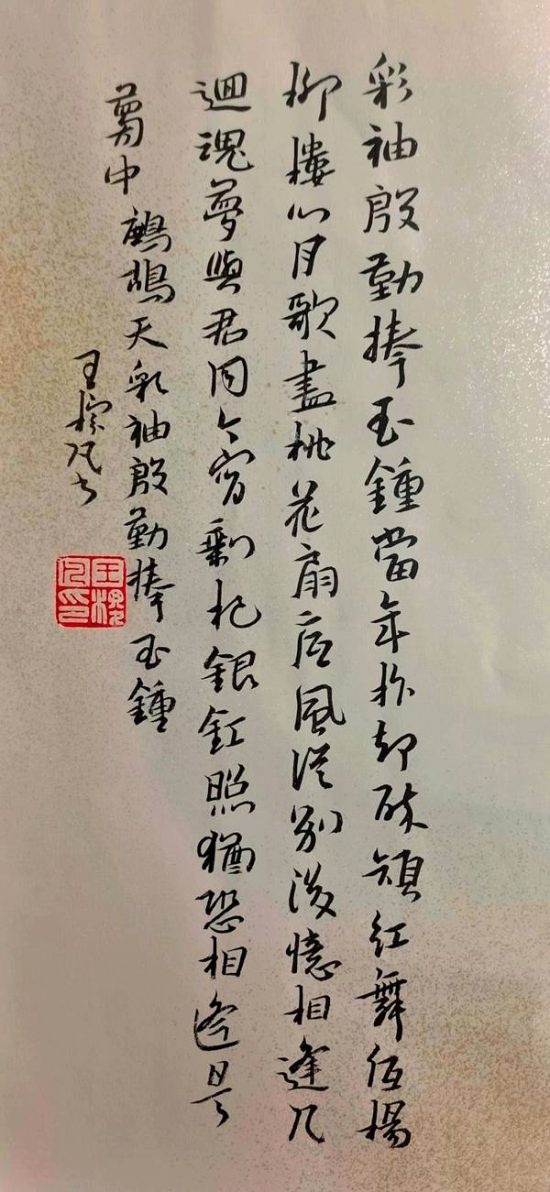 彩袖殷勤捧玉鍾當年拚却醉顏紅舞低楊
柳樓心月歌盡桃花扇底風從別後憶相逢几
迴魂夢與君同今宵剩把銀釭照猶恐相逢是
夢中 鷓鴣天彩袖殷勤捧玉鍾
王